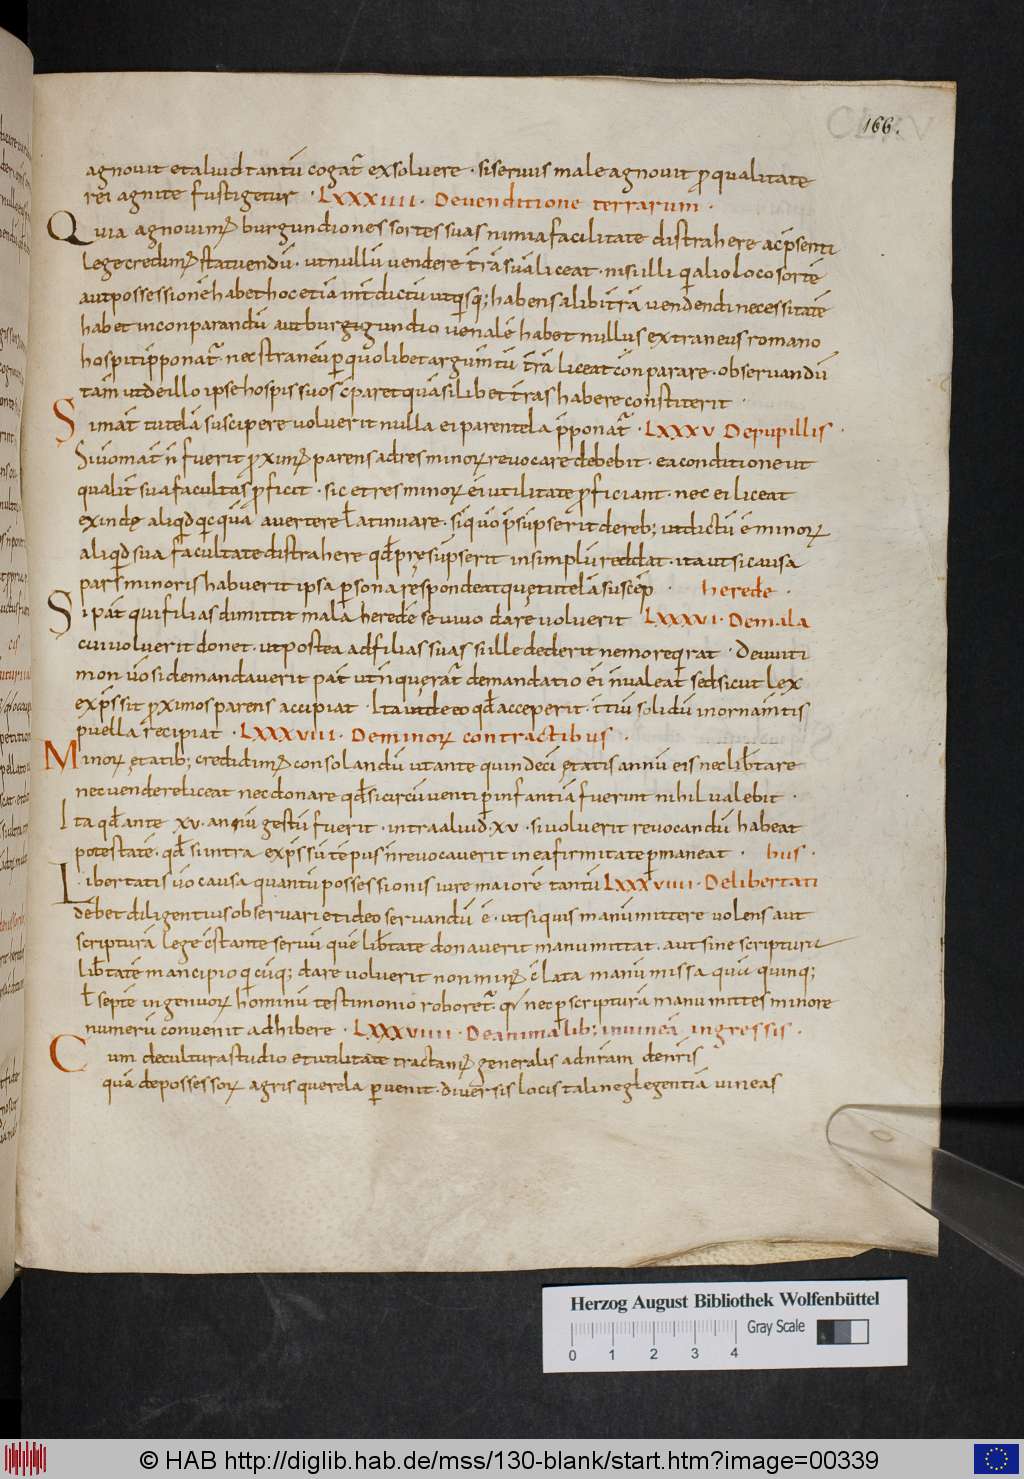 166.
agnovit et aliud tantū cogat̄ exsolvere · si servus male agnovit ꝓ qualitate
rei agnite fustigetur · LXXXIIII · De venditione terrarum ·
Quia agnovim᷒ burgundiones sortes suas nimia facilitate distrahere ac p̄senti
lege credim᷒ statuendū · ut nullū vendere t̄rā suā liceat · nisi illi q̇ alio loco sortē
aut possessionē habet hoc etiā int̄dictū ut q̇sq; habens alibi t̄rā vendendi necessitatē
habet in conparandū aut burgigundio venalē habet nullus extraneus romano
hospiti p̄ponat̄ nec straneū ꝑ quolibet argum̄tū t̄rā liceat cōnparare · observandū
tam̄ ut de illo ipse hospis suos c̄paret quā silibet t̄ras habere constiterit ·
Si mat̄ tutelā suscipere voluerit nulla ei parentela p̄ponat̄ · LXXXV De pupillis ·
Si v̄o mat̄ n̄ fuerit ꝓxim᷒ parens ad res minorꝝ revocare debebit · ea conditione ut
qualit̄ sua facultas ꝓficit · sic et res minorꝝ ei utilitate ꝓficiant · nec ei liceat
exindę aliqd̄ q̇cquā avertere ł atinuare · si quō p̄sūpserit de reb; ut dictū ē minorꝝ
aliqd̄ sua facultate distrahere qd̄ pręsūpserit in simplū reddat · ita ut si causa
pars minoris habuerit ipsa ꝑsona respondeat quę tutelā suscep̄ · herede ·
Si pat̄ qui filias dimittit mala herede se vivo dare voluerit LXXXVI · De mala
cui voluerit donet · ut postea ad filias suas si ille dederit nemo reqrat · De witi
mon v̄o si demandaverit pat̄ ut n̄ querat̄ demandatio ei n̄ valeat sed sicut lex
exp̄ssit ꝓximos parens accipiat · Ita ut de eo qd̄ acceperit · t̄tiū solidū in ornam̄tis
puella recipiat · LXXXVIII · De minorꝝ contractibus ·
Minorꝝ ętatib; credidim᷒ consolandū ut ante quindeci ętatis annū eis nec lib̄tare
nec vendere liceat nec donare qd̄ si circūventi ꝑ infantiā fuerint nihil valebit ·
Ita qd̄ ante XV · annū gestū fuerit · intra aliud · XV · si voluerit revocandū habeat
potestatē · qd̄ si intra exp̄ssū tēpus n̄ revocaverit in ea firmitate ꝑmaneat · bus ·
Libertatis v̄o causa quantū possessionis iure maiorē tantū LXXXVIIII · De libertati
debet diligentius observari et ideo servandū ē · ut si quis manūmittere volens aut
scripturā lege c̄stante servū quē lib̄tate donaverit manumittat · aut sine scriptura
lib̄tatē mancipio q̇cūq; dare voluerit non min᷒ c̄lata manūmissa quā quinq;
ł septē ingenuorꝝ hominū testimonio roboret̄ · q̇ nec ꝑ scripturā manumittes minore
numerū convenit adhibere · LXXXVIIII · De animalib; in vineā ingressis ·
Cum de cultura studio et utilitate tractam᷒ generalis ad n̄ram de n̄ris
quā de possessorꝝ agris querela ꝑvenit · diversis locis tali neglegentiā vineas
Herzog August Bibliothek Wolfenbüttel
Gray Scale
0 1 2 3 4
© HAB http://diglib.hab.de/mss/130-blank/start.htm?image=00339